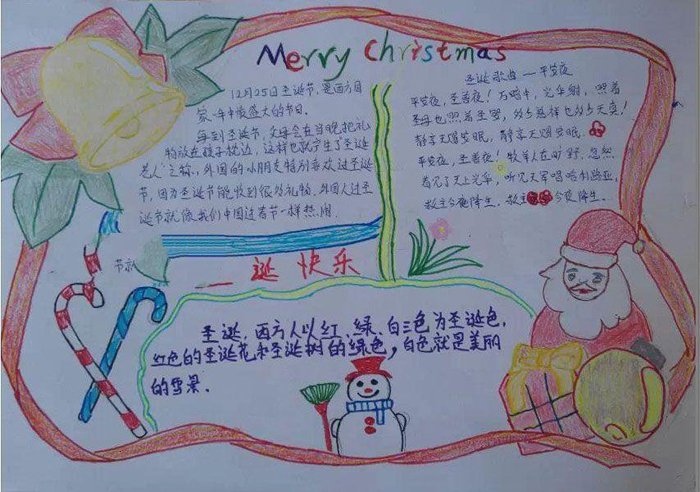 Merry Christmas
12月25日圣诞节,是西方国
家一年中最盛大的节日。
每到圣诞节,父母会在当晚把礼
物放在孩子枕边,这样也就产生了圣诞
老人之称,外国的小朋友特别喜欢过圣诞
节,因为圣诞节能收到很多礼物,外国人过圣
诞节就像我们中国过春节一样热闹.
圣诞歌曲——平安夜
平安夜,圣善夜!万暗中,光华射,照着
圣母也照着圣婴,多少慈祥也多少天真!
静享天赐安眠,静享天赐安眠.
平安夜,圣善夜!牧羊人在旷野,忽然
看见了天上光华,听见天军唱哈利路亚,
救主今夜降生,救主今夜降生.
节
诞快乐
圣诞,西方人以红、绿、白三色为圣诞色,
红色的圣诞花和圣诞树的绿色,白色就是美丽
的雪景.